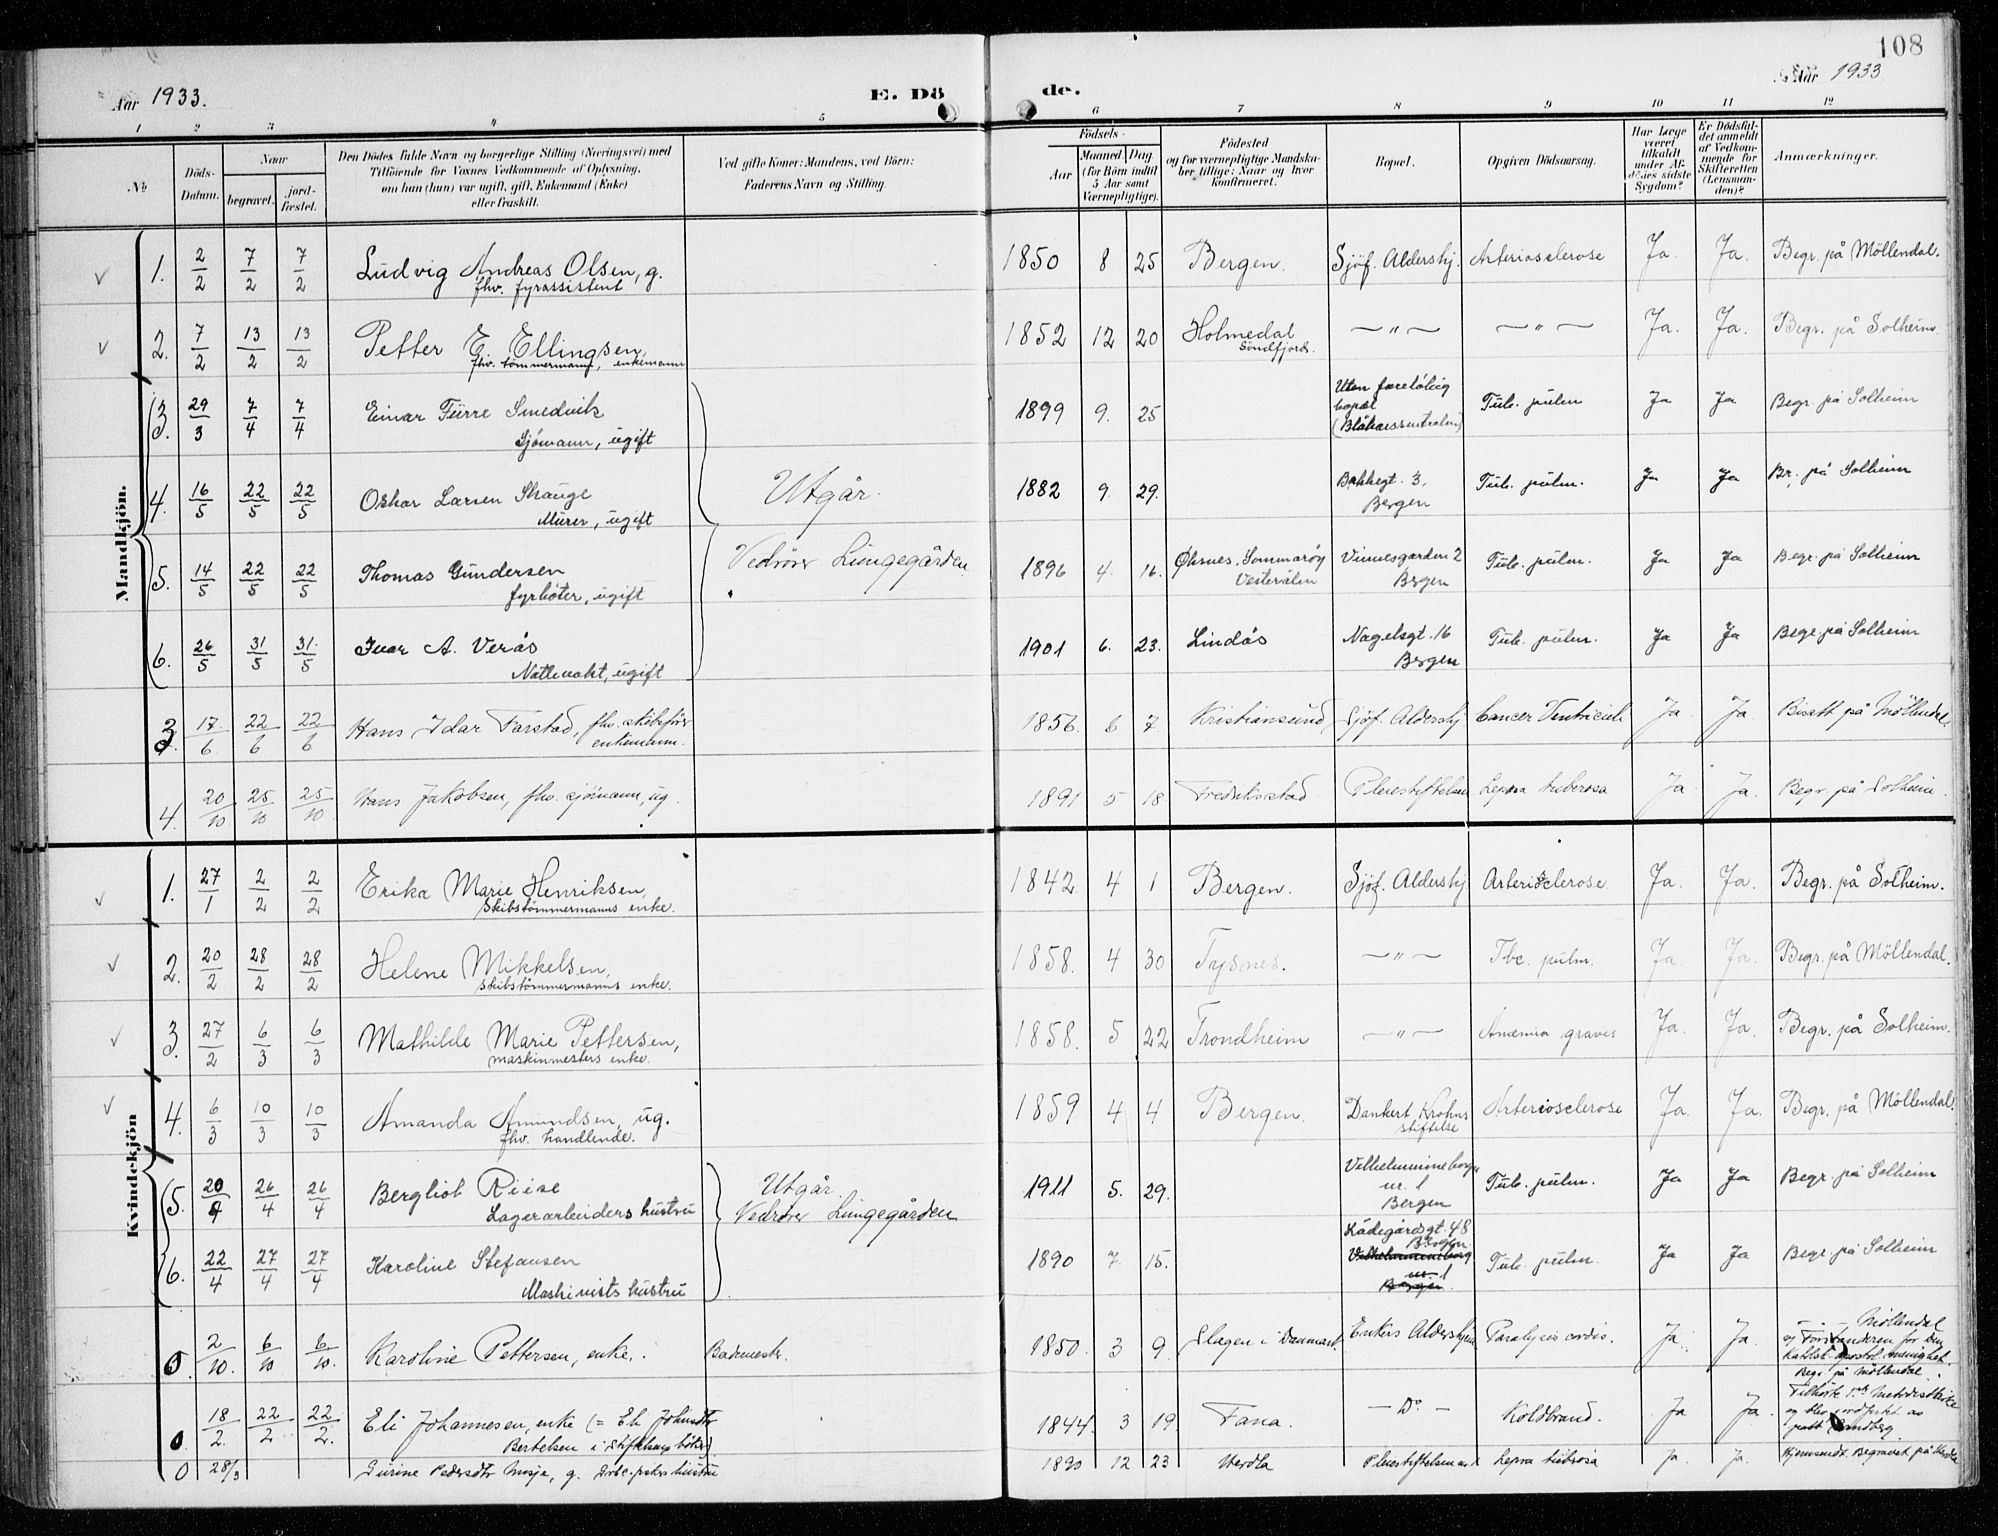 108
Aar 1933.
E. Dö de.
Aar 1933
1 2 3 4 5 6 7 8 9 10 11 12
No
Döds-Datum.
Naar begravet. jord-fæstet.
Den Dödes fulde Navn og borgerlige Stilling (Næringsvei) med Tilföiende for Voxnes Vedkommende af Oplysning, om han (hun) var ugift, gift, Enkemand (Enke) eller fraskilt.
Ved gifte Koner: Mandens, ved Börn: Faderens Navn og Stilling.
Födsels-
Aar Maaned Dag (for Börn indtil 5 Aar samt Værnepligtige).
Födested og for værnepligtige Mandskaber tillige: Naar og hvor konfirmeret.
Bopæl.
Opgiven Dödsaarsag.
Har Læge været tilkaldt under Afdödes sidste Sygdom?
Er Dödsfaldet anmeldt af Vedkommende for Skifteretten (Lensmanden)?
Anmærkninger.
Mandkjön.
1. 2/2 7/2 7/2 Ludvig Andreas Olsen, g. 1850 8 25 Bergen. Sjöf. Aldershj. Arteriosclerose Ja. Ja. Begr. på Möllendal.
fhv. fyrassistent
2. 7/2 13/2 13/2 Petter E. Ellingsen, 1852 12 20 Holmedal — " — — " — Ja. Ja. Begr. på Solheim.
fhv. tömmermann, enkemann Söndfjord.
3. 29/3 7/4 7/4 Einar Fürre Smedvik 1899 9. 25 Uten foreløbig bopæl Tub. pulm Ja Ja Begr. på Solheim
Sjömann, ugift
4. 16/5 22/5 22/5 Oskar Larsen Skauge Utgår. 1882 9. 29. Bakkegt. 3, Tub. pulm. Ja Ja Br. på Solheim
Murer, ugift Bergen
5. 14/5 22/5 22/5 Thomas Gundersen Vedrører Lungegården. 1896 4. 16. Øksnes, Sommarøy Vinnesgarden 2 Tub. pulm. Ja Ja Begr. på Solheim
fyrbøter, ugift Vesterålen Bergen
6. 26/5 31/5 31/5 Ivar A. Verås 1901 6. 23. Lindås Nagelsgt. 16 Tub. pulm. Ja Ja Begr. på Solheim
Nattevakt, ugift Bergen
3. 17/6 22/6 22/6 Hans Idar Farstad, fhv. skibsfører 1856. 6 7. Kristiansund Sjöf. Aldershj Cancer Ventriculi Ja Ja. Bisatt på Möllendal.
enkemann.
4. 20/10 25/10 25/10 Hans Jakobsen, fhv. sjömann, ug. 1891 5 18. Fredrikstad Pleiestiftelsen Lepra tuberosa Ja Ja. Begr. på Solheim.
Kvindekjön
1. 27/1 2/2 2/2 Erika Marie Henriksen, 1842. 4 1 Bergen. Sjöf. Aldershj. Arteriosclerose. Ja. Ja. Begr. på Solheim.
Skibstömmermanns enke.
2. 20/2 28/2 28/2 Helene Mikkelsen, 1858. 4 30 Tysnes. — " — Tbc. pulm. Ja. Ja. Begr. på Möllendal.
Skibstömmermanns enke.
3. 27/2 6/3 6/3 Mathilde Marie Pettersen, 1858. 5 22 Trondheim — " — Anæmia graves Ja. Ja. Begr. på Solheim.
maskinmesters enke.
4. 6/3 10/3 10/3 Amanda Amundsen, ug. 1859 4 4 Bergen. Dankert Krohns stiftelse Arteriosclerose Ja. Ja. Begr. på Möllendal.
fhv. handlende.
5. 20/4 26/4 26/4 Bergliot Riise Utgår. 1911 5. 29. nr. 1 Bergen Tub. pulm. Ja Ja Begr. på Solheim
Lagerarbeiders hustru Vedrører Lungegården
6. 22/4 27/4 27/4 Karoline Stefansen 1890 7. 15. Ladegårdsgt. 48 Bergen Tub. pulm. Ja Ja Begr. på Solheim
Maskinists hustru nr. 1 Bergen
2/10. 6/10 6/10. Karoline Pettersen, enke. Bademester. 1850. 3 9. Skagen i Danmark. Enkers Aldershjem Paralysis cordis. Ja. Ja. Möllendal
og Forstanderen for den Kathlsk apostol. menighet. Begr. på Möllendal.
18/2. 22/2 22/2. Eli Johannesen, enke (= Eli Johnsdtr 1844. 3 19 Fana. — Do — Koldbrand. Ja Ja. Tilhörte Metodistkirke
Bertelsen i Stiftelsens bøker). og blev jordfæst. av
0 28/3 Gurine Pedersdtr g. hustru 1890 12 23 Herdla Pleiestiftelsen Lepra tuberosa Ja. Ja. Hjemsendt. Begravet på Herdla